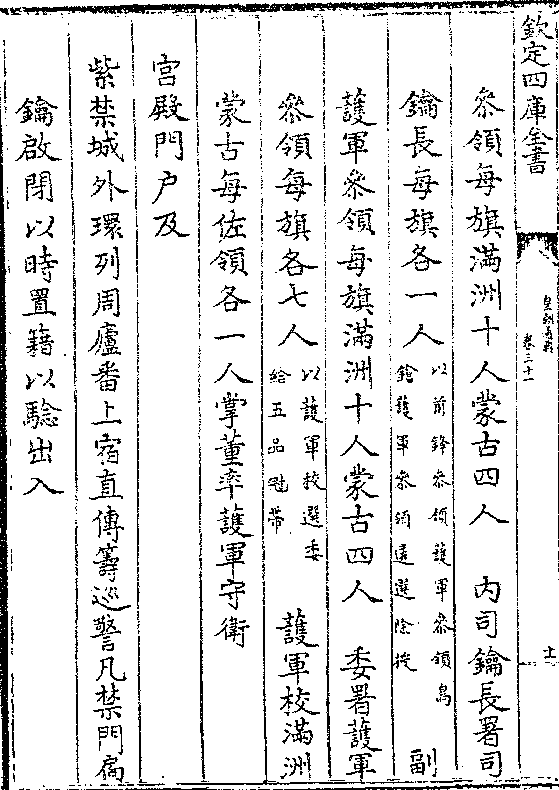 欽定四庫全書
皇朝通典
卷三十一
十一
參領每旗滿洲十人蒙古四人　內司鑰長署司
鑰長每旗各一人以前鋒參領護軍參領鳥鎗護軍參領遴選除授　副
護軍參領每旗滿洲十人蒙古四人　委署護軍
參領每旗各七人以護軍校選委給五品冠帶　護軍校滿洲
蒙古每佐領各一人掌董率護軍守衛
宮殿門户及
紫禁城外環列周廬番上宿直傳籌巡警凡禁門扃
鑰啟閉以時置籍以驗出入